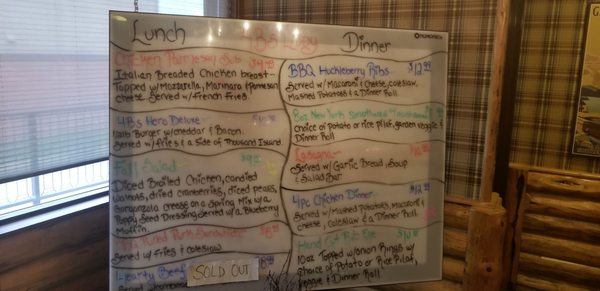 Lunch
Chicken Parmesan Sub
Italian Breaded Chicken breast
Topped w/Mozzarella, Marinara & Parmesan
cheese. Served w/French Fries.
4B's Hero Deluxe
Burger w/cheddar & Bacon.
Served w/fries & a side of Thousand Island.
Fall Salad
Diced Broiled Chicken, candied
walnuts, dried cranberries, diced pears,
Gorgonzola cheese on a Spring Mix w/a
Poppy Seed Dressing. Served w/a Blueberry
Muffin
Pulled Pork Sandwich
Served w/fries & coleslaw
Hearty Beef
SOLD OUT
Dinner
BBQ Huckleberry Ribs $12.99
Served w/Macaroni & Cheese, coleslaw,
Mashed Potatoes & a Dinner Roll
8oz New York
choice of potato or rice pilaf, garden veggie &
Dinner Roll
Lasagna
Served w/ Garlic Bread, Soup
& Salad Bar
4pc Chicken Dinner
Served w/Mashed Potatoes, Macaroni
& cheese, Coleslaw & a Dinner Roll
Hand Cut Rib Eye
10oz Topped w/onion Rings w/
choice of Potato or Rice Pilaf,
Veggie & Dinner Roll